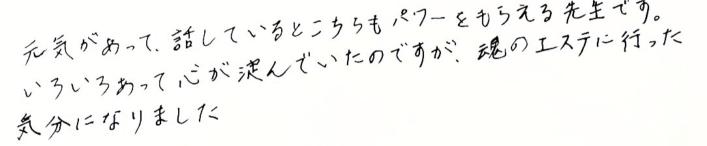 元気があって、話しているとこちらもパワーをもらえる先生です。
いろいろあって心が淀んでいたのですが、魂のエステに行った
気分になりました